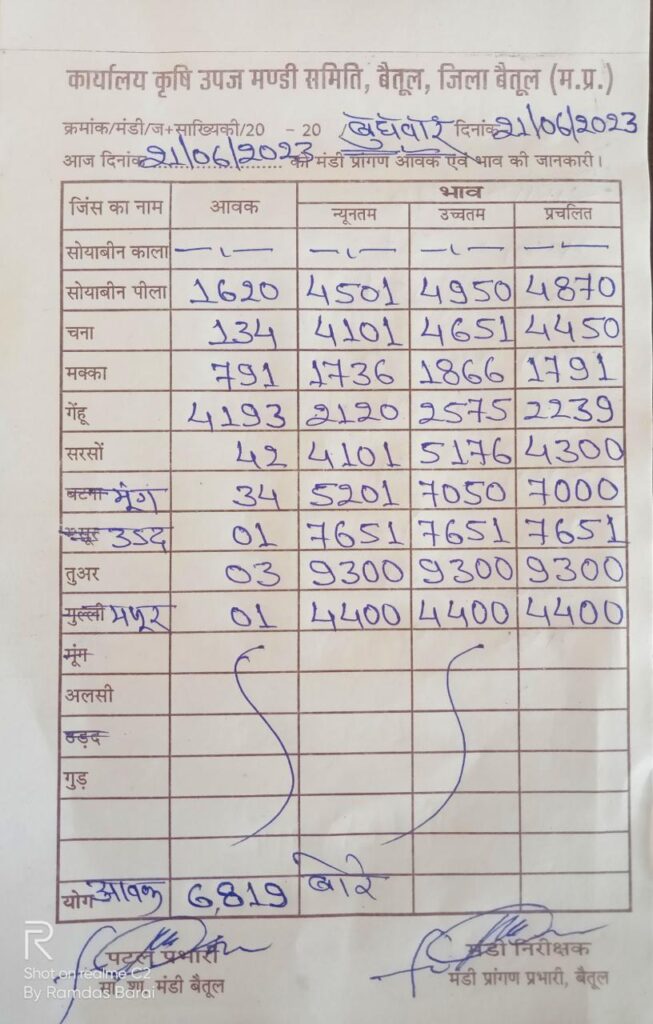 कार्यालय कृषि उपज मण्डी समिति, बैतूल, जिला बैतूल (म.प्र.)
क्रमांक/मंडी/ज+साख्यिकी/20 - 20 /बुधवार दिनांक 21/06/2023
आज दिनांक 21/06/2023 को मंडी प्रांगण आवक एवं भाव की जानकारी।
जिंस का नाम आवक भाव
न्यूनतम उच्चतम प्रचलित
सोयाबीन काला —,— —,— —,— —,—
सोयाबीन पीला 1620 4501 4950 4870
चना 134 4101 4651 4450
मक्का 791 1736 1866 1791
गेंहू 4193 2120 2575 2239
सरसों 42 4101 5176 4300
बटना मूंग 34 5201 7050 7000
मसूर उडद 01 7651 7651 7651
तुअर 03 9300 9300 9300
गुल्ली मसूर 01 4400 4400 4400
मूंग
अलसी
उड़द
गुड़
योग आवक 6,819 बोरे
पटल प्रभारी मंडी निरीक्षक
शा. मंडी बैतूल मंडी प्रांगण प्रभारी, बैतूल
R
Shot on realme C2
By Ramdas Barai